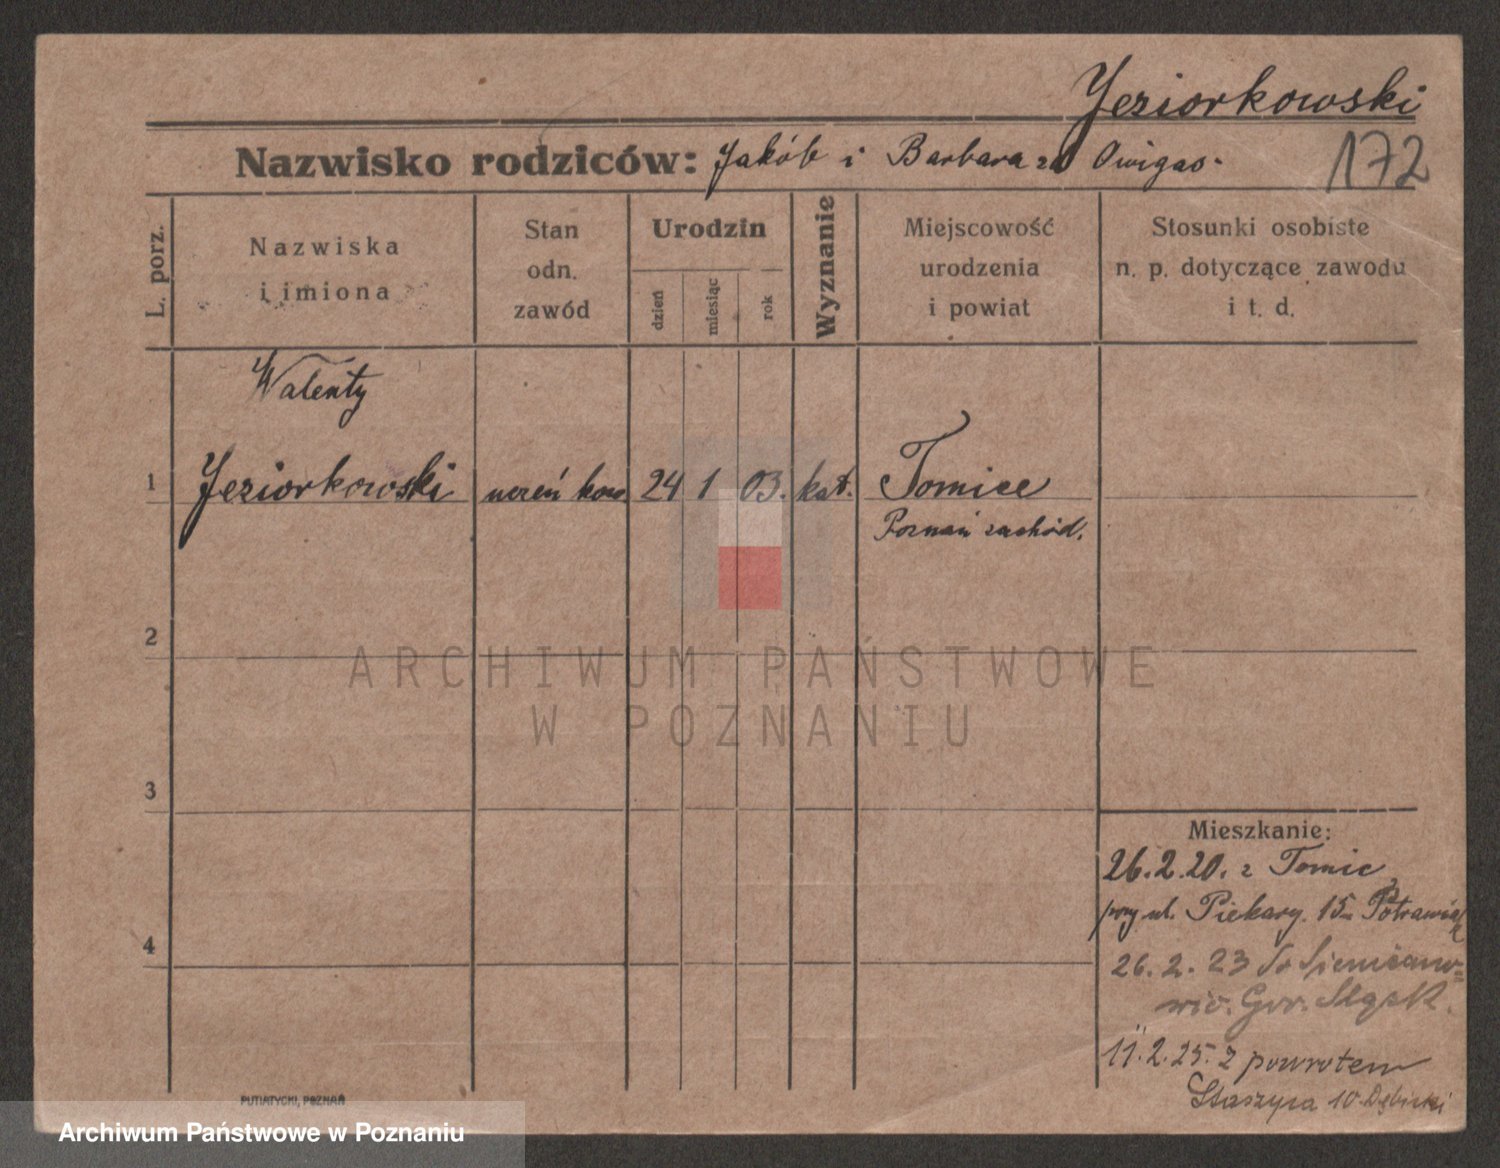 Jeziorkowski
Nazwisko rodziców: Jakób i Barbara zd Owigao.
172
L. porz.
Nazwiska
i imiona
Stan
odn.
zawód
Urodzin
dzień
miesiąc
rok
Wyznanie
Miejscowość
urodzenia
i powiat
Stosunki osobiste
n. p. dotyczące zawodu
i t. d.
Walenty
1 Jeziorkowski uczeń kow 24 1 03. kat. Tomice
Poznań zachód.
2
ARCHIWUM PAŃSTWOWE
W POZNANIU
3
4
Mieszkanie:
26.2.20. z Tomic
przy ul. Piekary. 15
26. 2. 23 Siemianow=
wic. Gór. Śląsk.
11.2.25. z powrotem
Staszyca 10
PUTIATYCKI, POZNAŃ
Archiwum Państwowe w Poznaniu